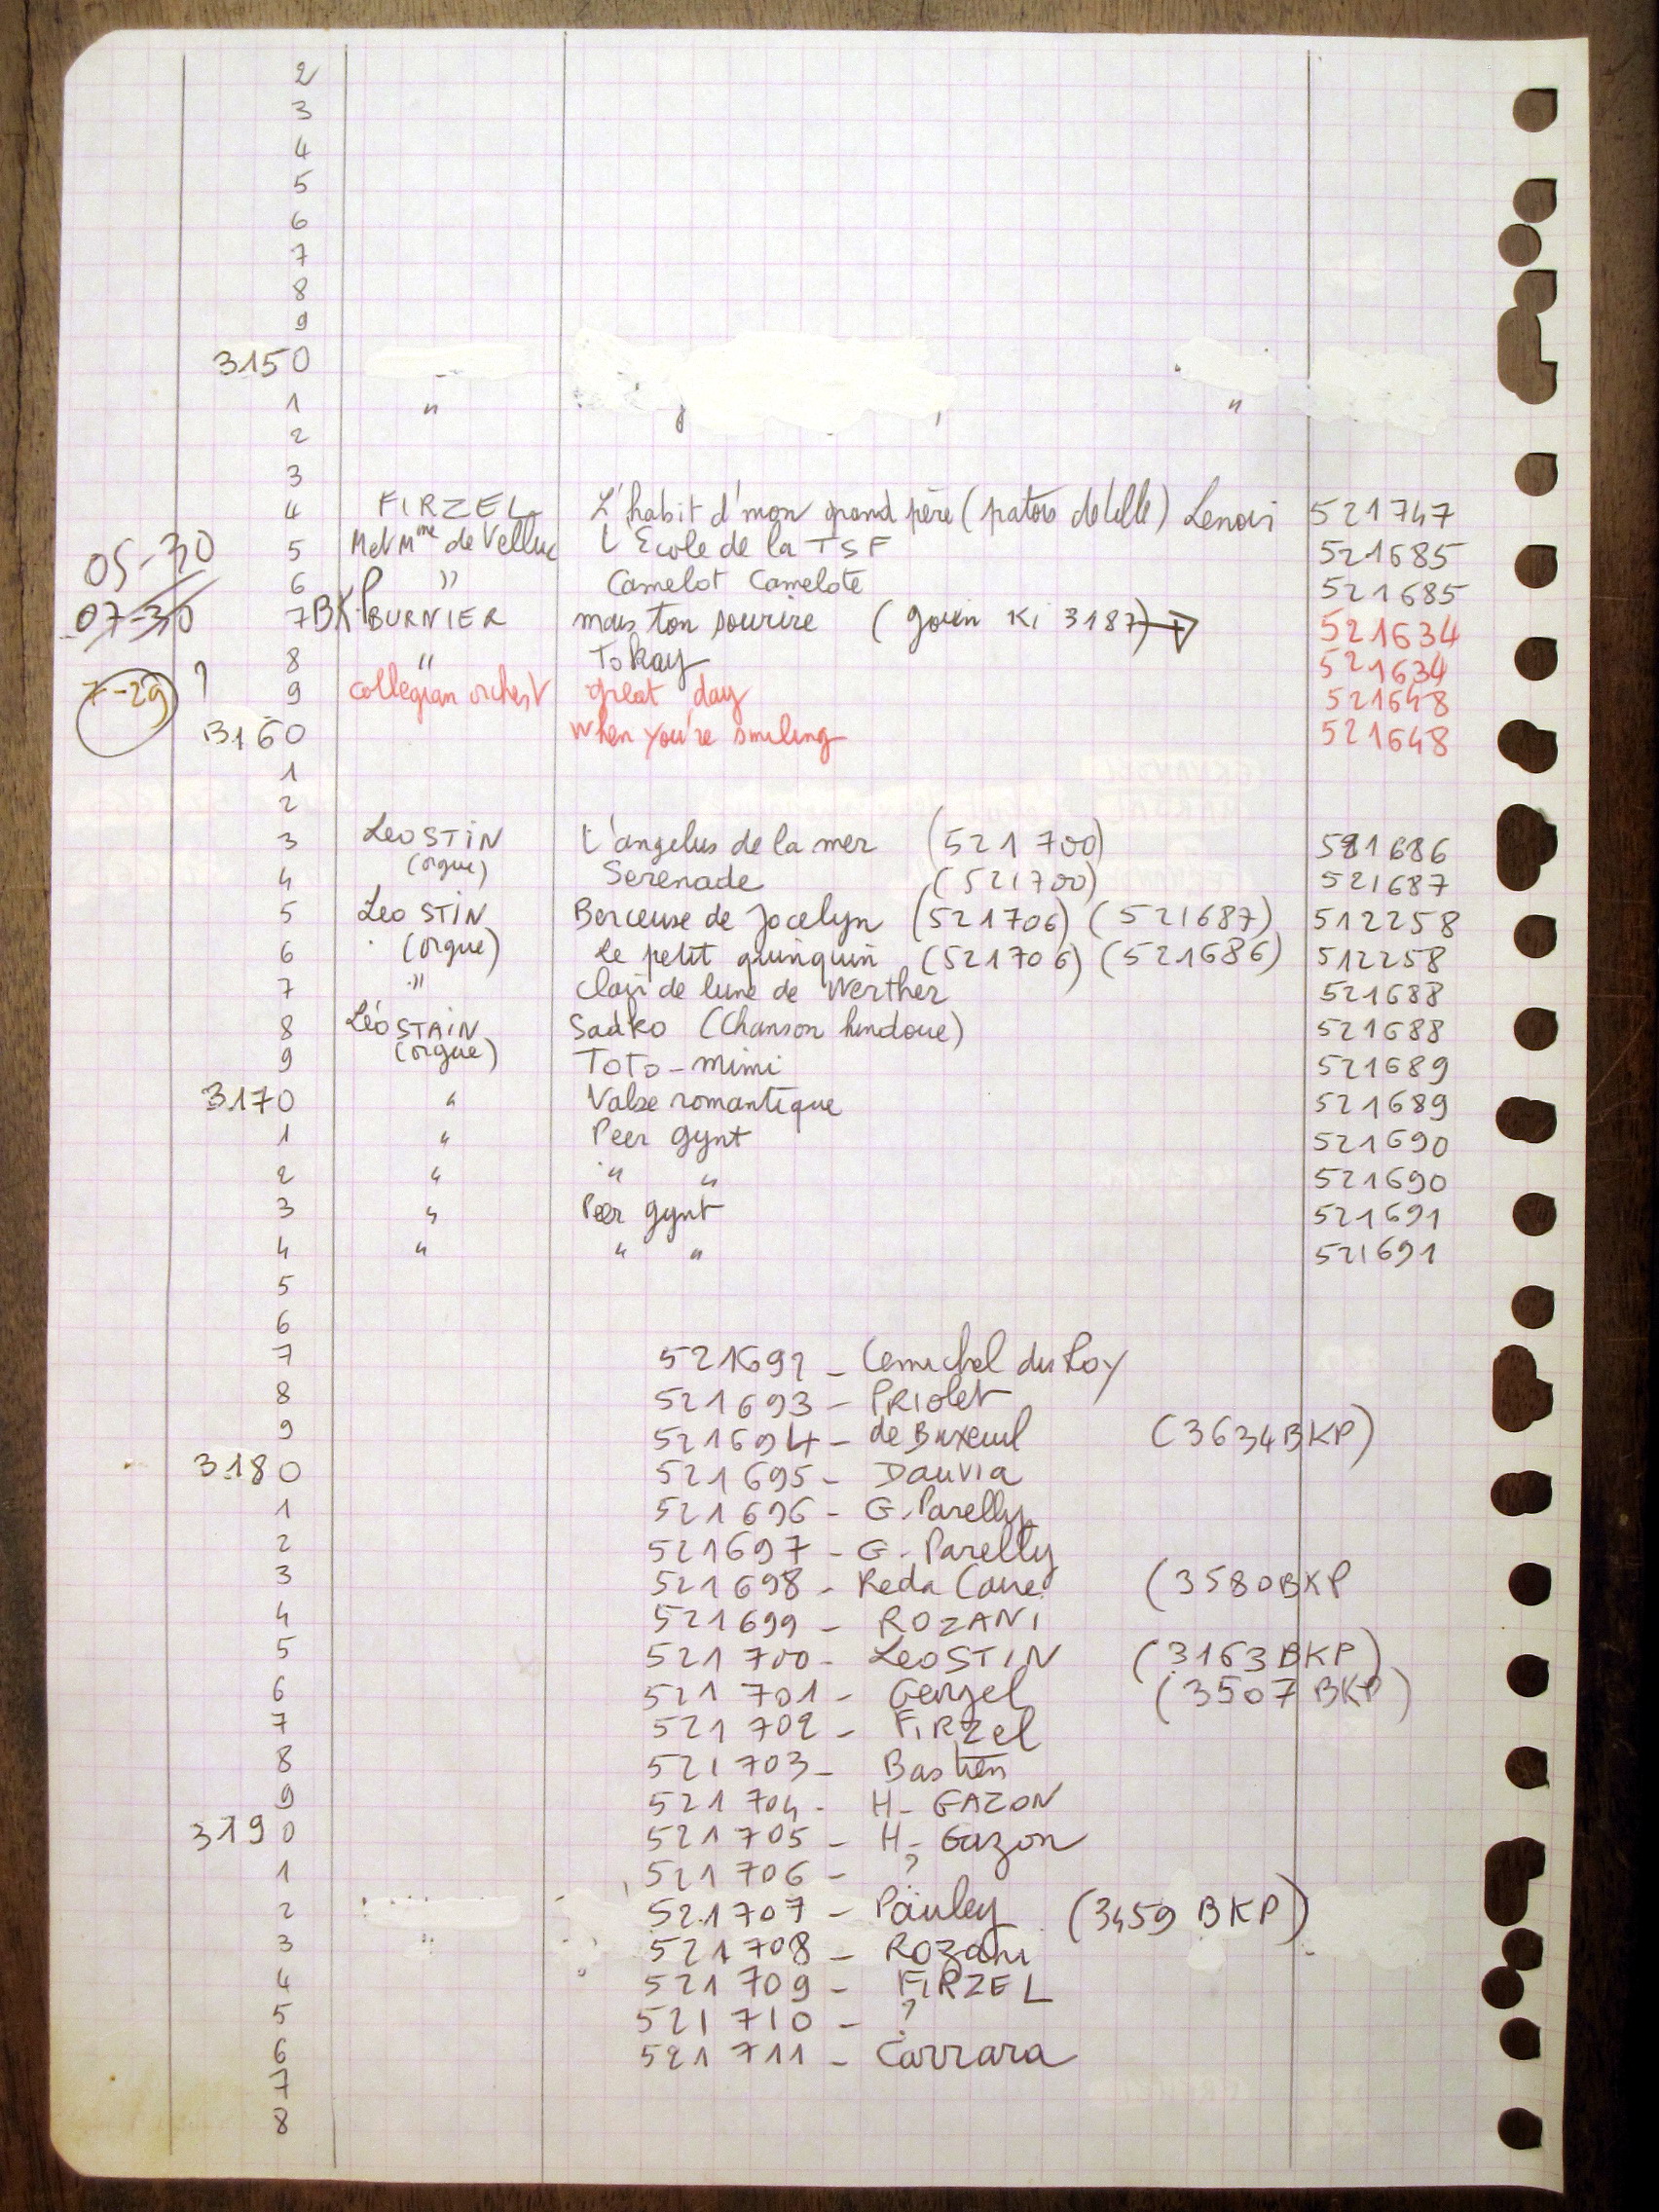 2
3
4
5
6
7
8
9
3150
1 " "
2
3
4 FIRZEL L'habit d'mon grand père (patois de Lille) Lenoir 521747
05-30 5 M et Mme de Velluc L'Ecole de la TSF 521685
6 " Camelot Camelote 521685
07-30 7 BKP BURNIER mais ton sourire (gouin Ki 3187) → 521634
8 " Tokay 521634
7-29 ? 9 collegian orchest great day 521648
3160 when you're smiling 521648
1
2
3 Leo STIN L'angelus de la mer (521 700) 521686
4 (orgue) Serenade (521700) 521687
5 Leo STIN Berceuse de Jocelyn (521706) (521687) 512258
6 (orgue) le petit quinquin (521706) (521686) 512258
7 " clair de lune de Werther 521688
8 Léo STAIN Sadko (Chanson hindoue) 521688
9 (orgue) Toto-mimi 521689
3170 " Valse romantique 521689
1 " Peer gynt 521690
2 " " " 521690
3 " Peer gynt 521691
4 " " " 521691
5
6
7 521692 - Cemichel du Roy
8 521693 - PRIolet
9 521694 - de Buxeuil (3634BKP)
3180 521695 - Dauvia
1 521696 - G. Parelly
2 521697 - G. Parelly
3 521698 - Reda Caire (3580BKP
4 521699 - ROZANI
5 521 700 - LeoSTIN (3163BKP)
6 521 701 - Gergel (3507 BKP)
7 521 702 - FIRZel
8 521 703 - Bastien
9 521 704 - H- GAZON
3190 521 705 - H- Gazon
1 521 706 - ?
2 521707 - Pauley (3459 BKP)
3 " 521 708 - Rozani
4 521 709 - FIRZEL
5 521 710 - ?
6 521 711 - Carrara
7
8